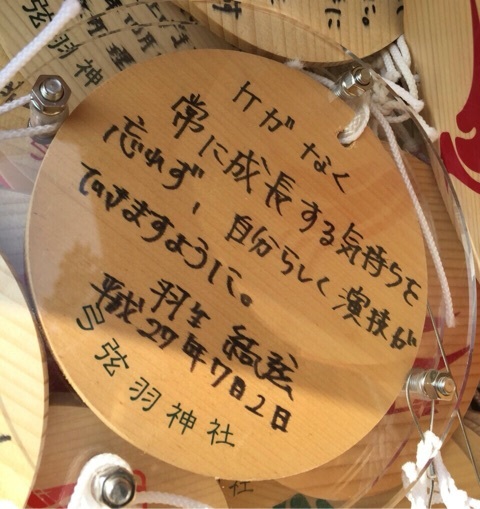 ケガなく
常に成長する気持ちを
忘れず、自分らしく演技が
できますように。
羽生 結弦
平成27年7月2日
弓弦羽神社
弦羽神